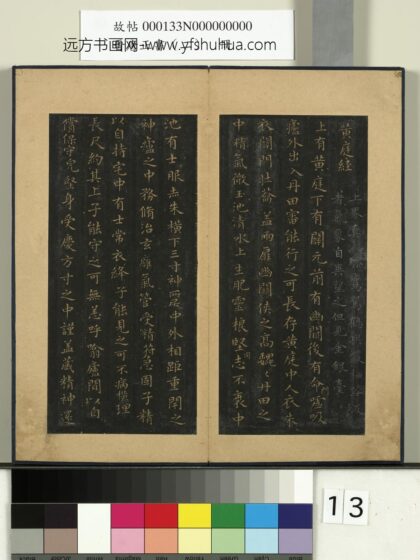 故帖 000133N000000000
远方书画网 www.yfshuhua.com
黄庭經
上有黄庭下有關元前有幽關後有命廬呬吸
廬外出入丹田審能行之可長存黄庭中人衣朱
衣關門壯籥蓋兩扉幽關侠之高魏魏丹田之
中精氣微玉池清水上生肥靈根堅志不衰中
池有士服赤朱橫下三寸神所居中外相距重閇之
神廬之中務脩治玄廱氣管受精符急固子精
以自持宅中有士常衣絳子能見之可不病橫理
長尺約其上子能守之可無恙呼翕廬閒以自
償保守完堅身受慶方寸之中謹蓋藏精神還
13